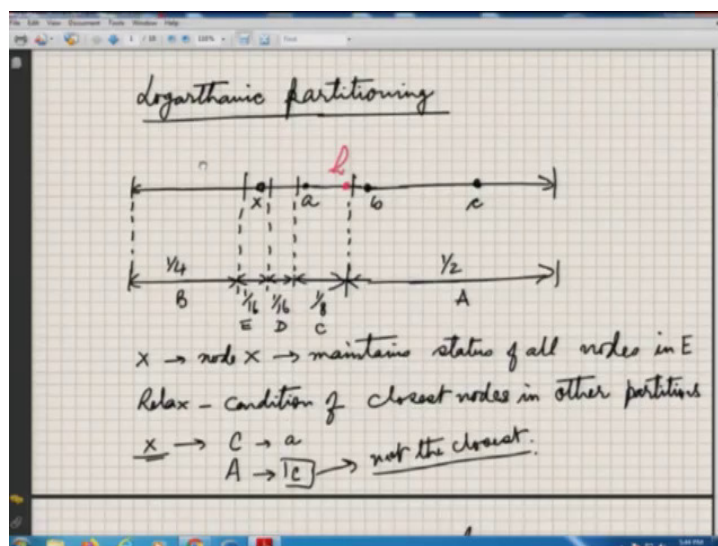 File Edit View Document Tools Window Help
1 / 18 110% Find
Logarthamic partitioning
l
x a b c
1/4 1/2
B 1/16 1/16 1/8 A
E D C
x → node x → maintains status of all nodes in E
Relax - condition of closest nodes in other partitions
x → C → a
A → c → not the closest.
5:44 PM